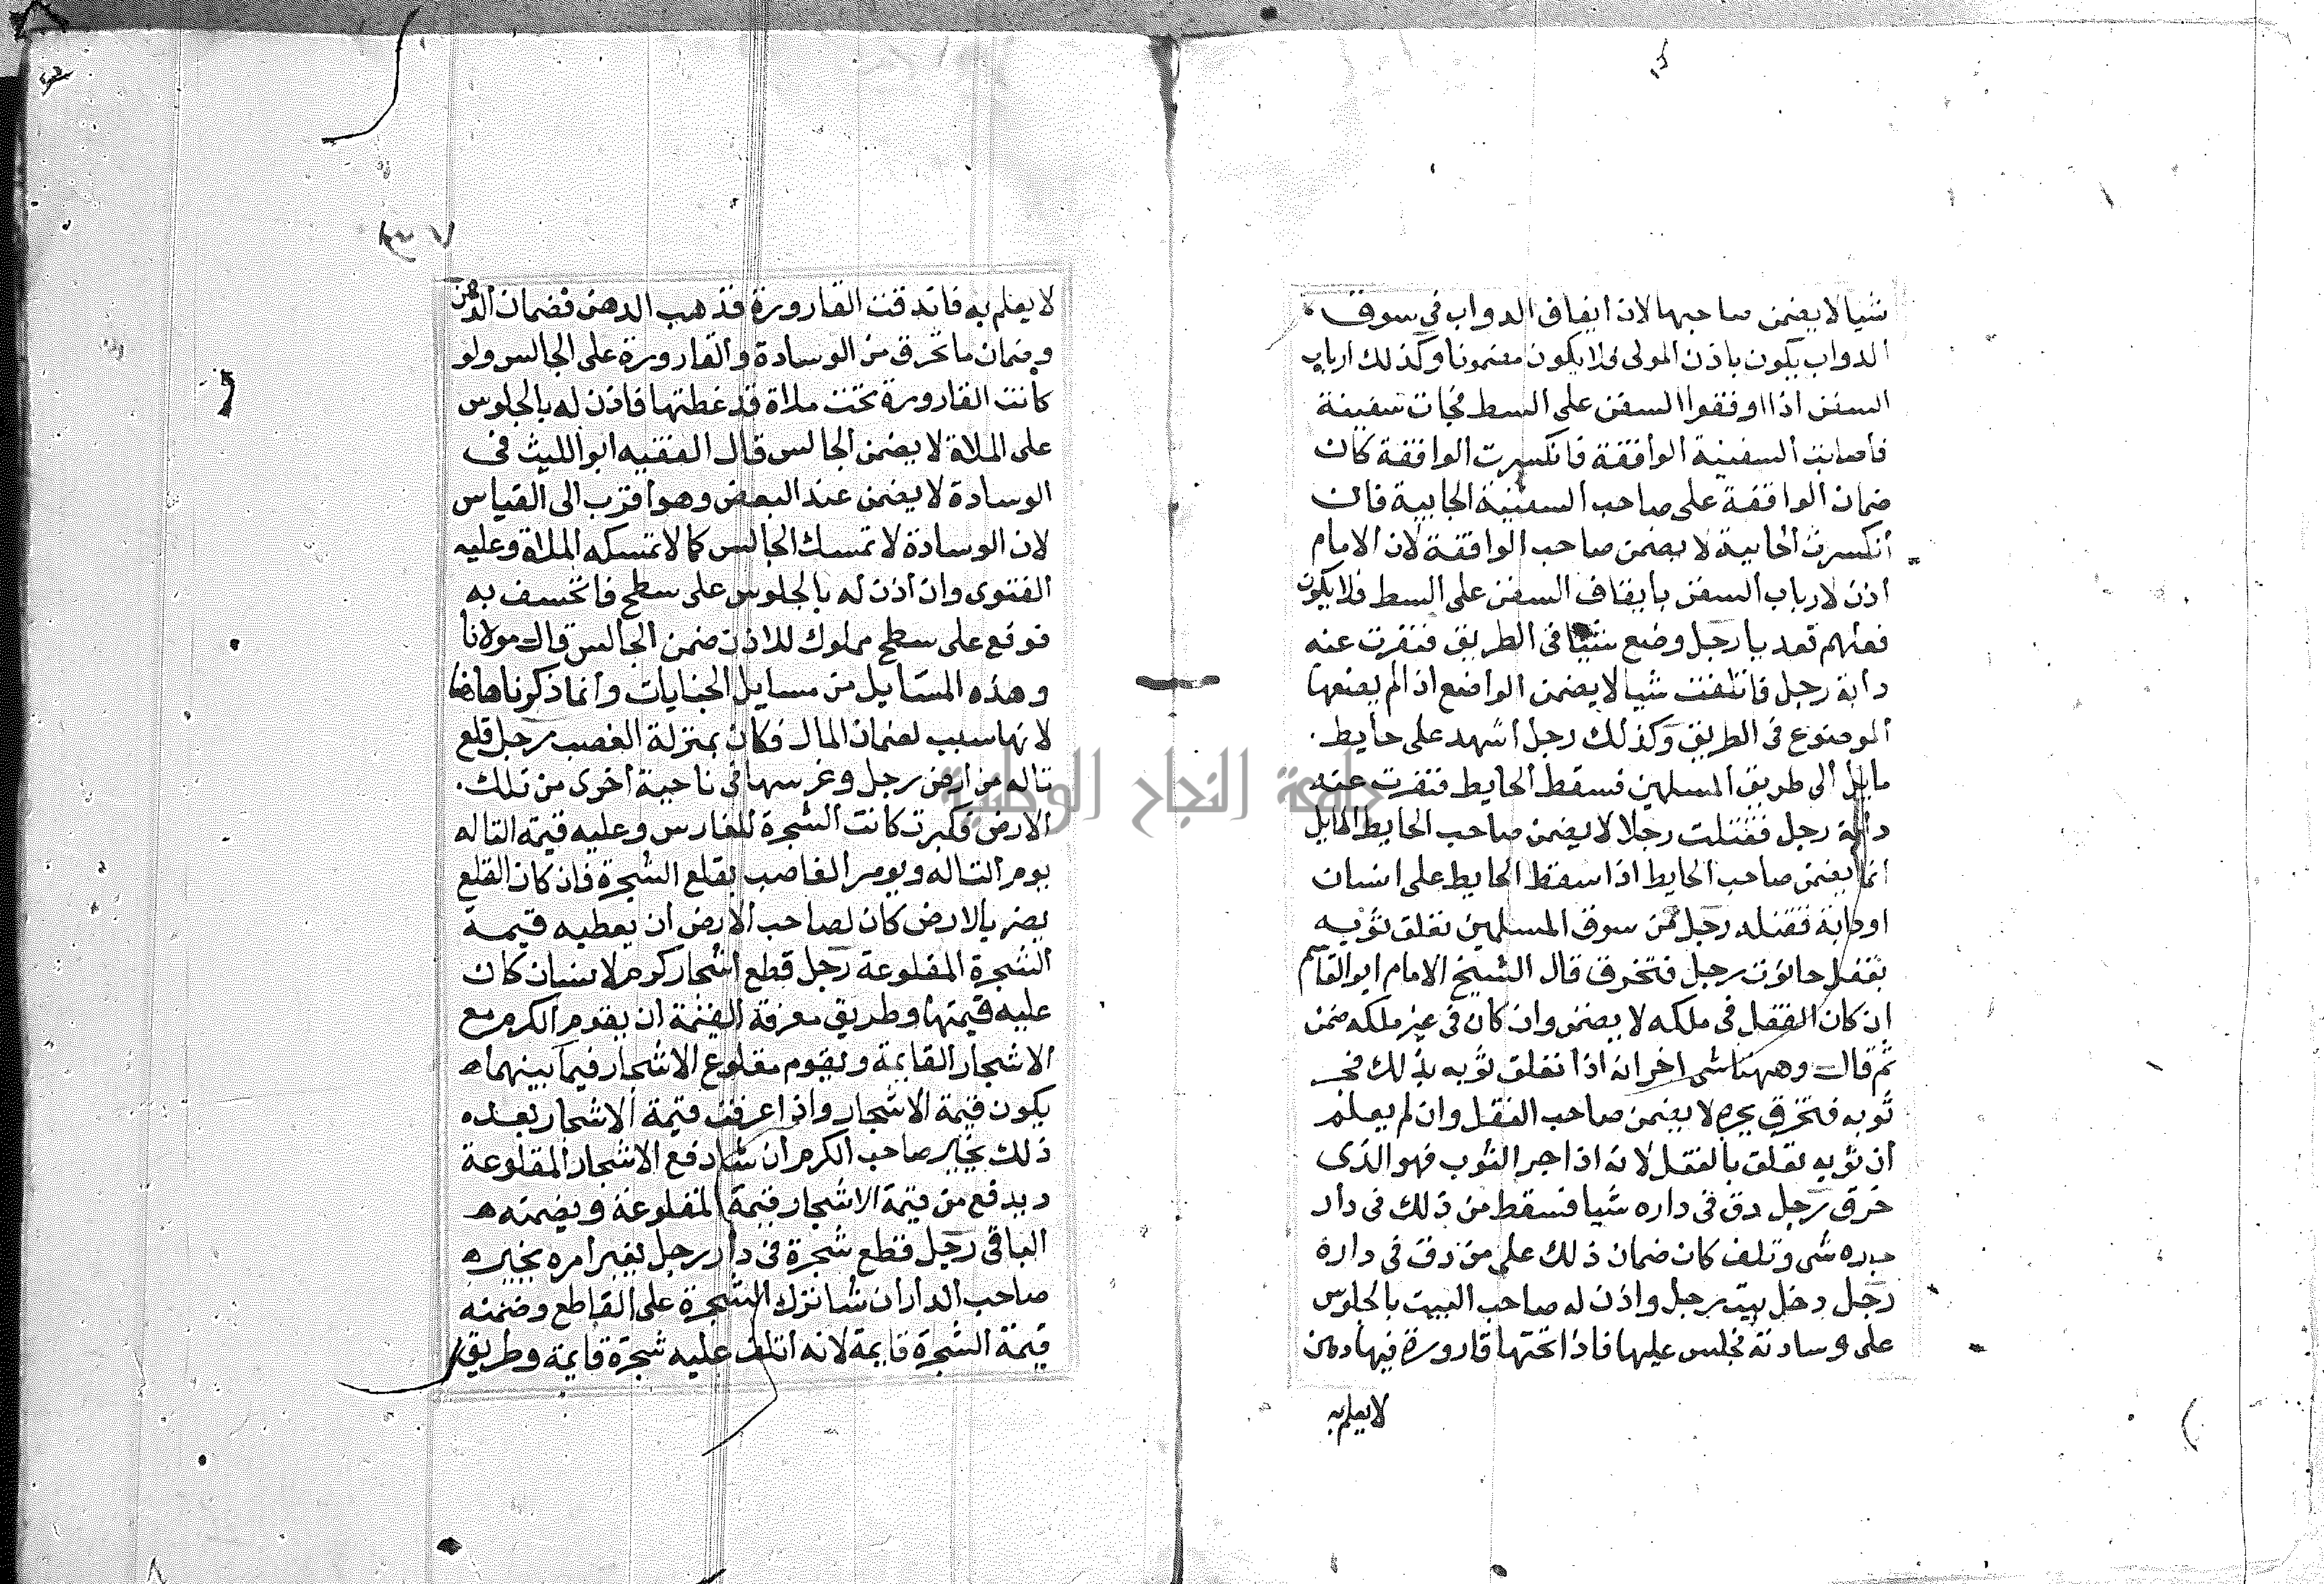 شيا لا يضمن صاحبها لان ايقاف الدواب في سوق
الدواب يكون باذن المولى فلا يكون مضمونا وكذلك ارباب
السفن اذا اوقفوا السفن على الشط فجات سفينة
فأصابت السفينة الواقفة فانكسرت الواقفة كان
ضمان الواقفة على صاحب السفينة الجايية فان
أنكسرت الجايية لا يضمن صاحب الواقفة لان الامام
أذن لارباب السفن بأيقاف السفن على الشط فلا يكون
فعلهم تعديا رجل وضع شيا في الطريق فنفرت عنه
دابة رجل فاتلفت شيا لا يضمن الواضع اذا لم يصبها
الموضوع في الطريق وكذلك رجل أشهد على حايط
مايل الى طريق المسلمين فسقط الحايط فنفرت عنه
دابة رجل فقتلت رجلا لا يضمن صاحب الحايط المايل
انما يضمن صاحب الحايط اذا سقط الحايط على انسان
او دابة فقتله رجل مر في سوق المسلمين تعلق ثوبه
بقفل حانوت رجل فتخرق قال الشيخ الامام ابو القاسم
ان كان القفل في ملكه لا يضمن وان كان في غير ملكه ضمن
ثم قال وههنا شى اخر انه اذا تعلق ثوبه بذلك فجر
ثوبه فتخرق بجره لا يضمن صاحب القفل وان لم يعلم
أن ثوبه تعلق بالقفل لانه اذا جر الثوب فهو الذى
خرق رجل دق في داره شيا فسقط من ذلك في دار
جاره شى وتلف كان ضمان ذلك على من دق في داره
رجل دخل بيت رجل واذن له صاحب البيت بالجلوس
على وسادته فجلس عليها فاذا تحتها قارورة فيها دهن
لا يعلم به
لا يعلم به فاندقت القارورة فذهب الدهن فضمان الدهن
وضمان ما تخرق من الوسادة والقارورة على الجالس ولو
كانت القارورة تحت ملاة قد غطتها فاذن له بالجلوس
على الملاة لا يضمن الجالس قال الفقيه ابو الليث في
الوسادة لا يضمن عند البعض وهو أقرب الى القياس
لان الوسادة لا تمسك الجالس كما لا تمسكه الملاة وعليه
الفتوى وان أذن له بالجلوس على سطح فانخسف به
فوقع على سطح مملوك للاذن ضمن الجالس قال مولانا
وهذه المسايل من مسايل الجنايات وانما ذكرناها هاهنا
لانها سبب لضمان المال فكان بمنزلة الغصب رجل قلع
تاله من ارض رجل وغرسها في ناحية أخرى من تلك
الارض وكبرت كانت الشجرة للغارس وعليه قيمة التاله
يوم التاله ويومر الغاصب بقلع الشجرة فان كان القلع
يضر بالارض كان لصاحب الارض أن يعطيه قيمة
الشجرة المقلوعة رجل قطع اشجار كرم لانسان كان
عليه قيمتها وطريق معرفة القيمة ان يقوم الكرم مع
الاشجار القايمة ويقوم مقلوع الاشجار فيما بينهما
يكون قيمة الاشجار واذا عرفت قيمة الاشجار بعده
ذلك يخير صاحب الكرم أن شا دفع الاشجار المقلوعة
ويدفع من قيمة الاشجار قيمة المقلوعة ويضمنه
الباقى رجل قطع شجرة في دار رجل بغير أمره يخير
صاحب الدار ان شا ترك الشجرة على القاطع وضمنه
قيمة الشجرة قايمة لانه أتلف عليه شجرة قايمة وطريق
جامعة النجاح الوطنية